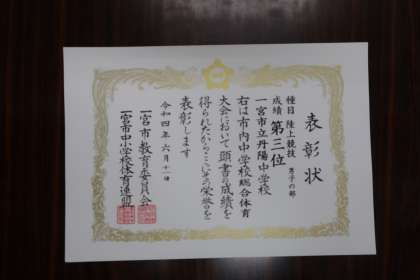 表彰状
種目 陸上競技 男子の部
成績 第三位
一宮市立丹陽中学校
右は市内中学校総合体育
大会において頭書の成績を
得られたからここにその栄誉を
表彰します
令和四年六月十一日
一宮市教育委員会
一宮市中小学校体育連盟